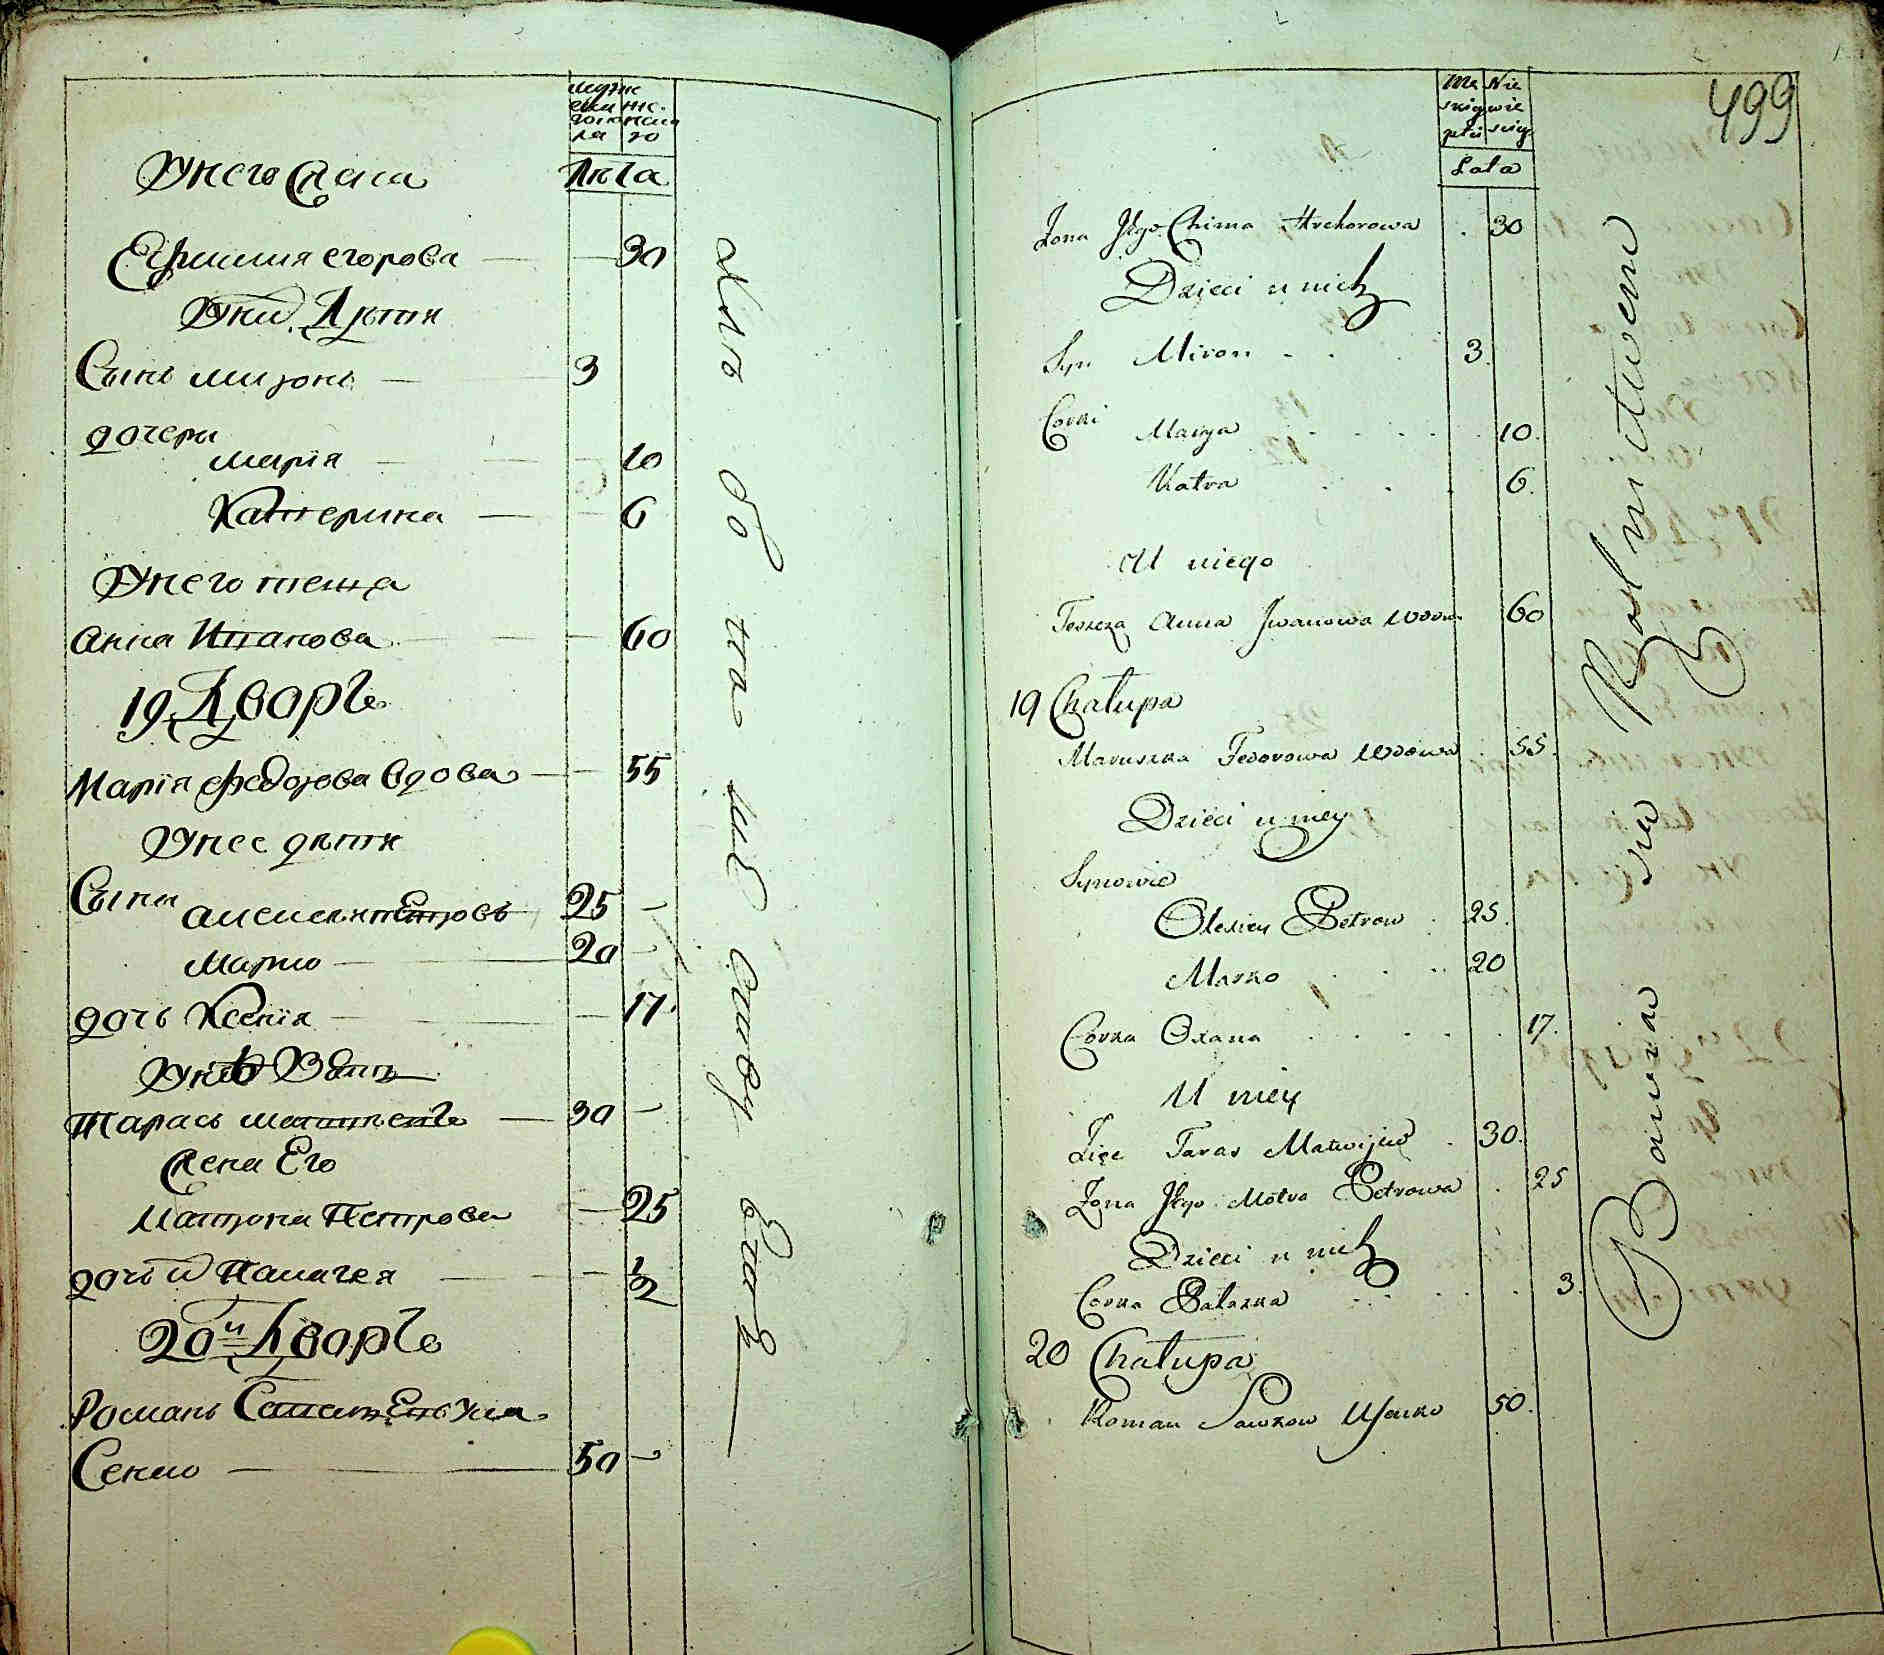 мужескаго пола
женскаго
Лѣта
У него жена
Ефимия егорова — 30
У них дѣти
Сынъ миронъ — 3
дочери
мария — 10
Катерина — 6
У него теща
анна Иванова — 60
19 Дворъ
Мария федорова вдова — 55
У нее дѣти
Сыны алексей Петровъ 25 —
Марко — 20 —
дочь Ксения — 17.
У нее зять
Тарасъ матвеевъ — 30 —
жена Его
Матрона Петрова — 25
дочь Палагея — 1/2
20й Дворъ
Романъ
Сенко — 50 —
499
Męskiey płci
Niewieściey
Lata
Zona Jego Chima Hrehorowa . 30
Dzieci u nich
Syn Miron . . . 3.
Corki Marya . . . . 10.
Katra . . . 6.
U niego
Teszcza Anna Jwanowa wdowa 60
19 Chałupa
Maruszka Fedorowa wdowa . 55.
Dzieci u niey
Synowie
Olexiey Petrow . 25.
Marko . . . 20
Corka Oxana . . . . . 17.
U niey
Zięć Taras Matwijew . 30.
Zona Jego Motra Petrowa . 25
Dzieci u nich
Corka Palazka . . . . . 3.
20 Chałupa
Roman Sawkow Usenko 50.